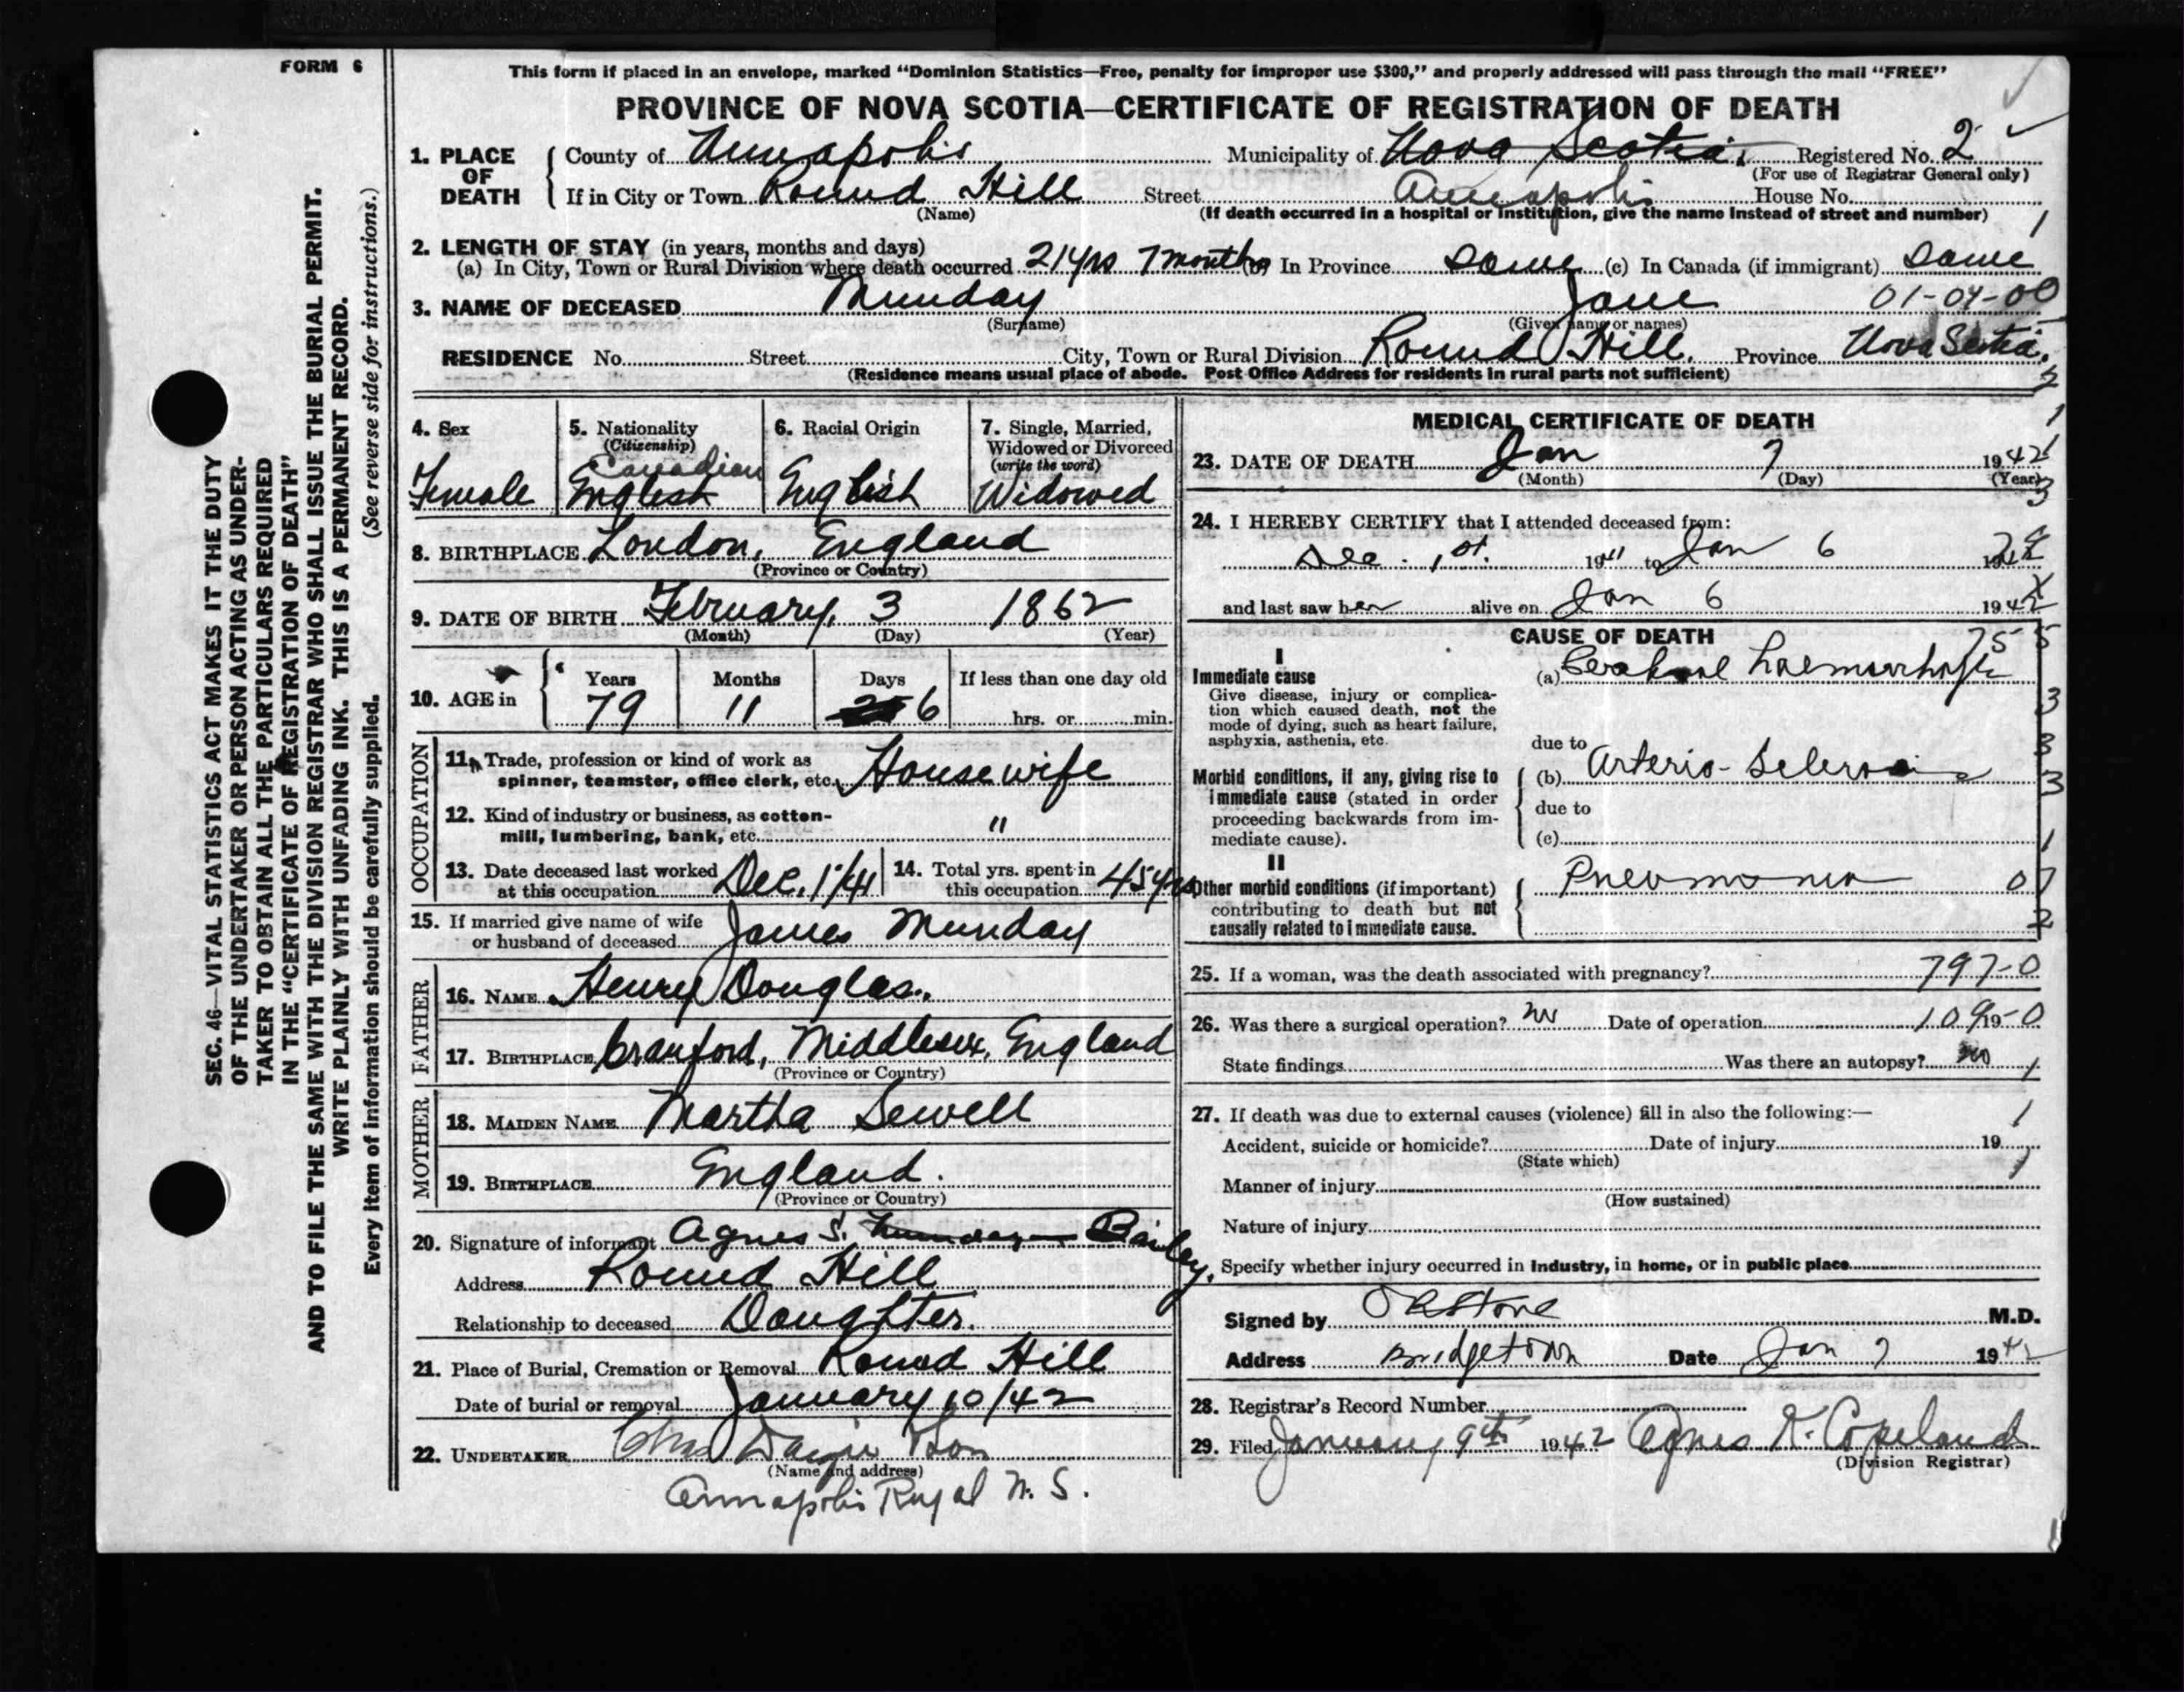 FORM 6
This form if placed in an envelope, marked "Dominion Statistics—Free, penalty for improper use $300," and properly addressed will pass through the mail "FREE"
PROVINCE OF NOVA SCOTIA—CERTIFICATE OF REGISTRATION OF DEATH
1. PLACE OF DEATH
County of Annapolis Municipality of Nova Scotia. Registered No. 2
(For use of Registrar General only)
If in City or Town Round Hill Street Annapolis House No.
(Name) (If death occurred in a hospital or institution, give the name instead of street and number)
2. LENGTH OF STAY (in years, months and days)
(a) In City, Town or Rural Division where death occurred 21 yrs 7 months (b) In Province same (c) In Canada (if immigrant) same
3. NAME OF DECEASED Munday Jane 01-04-00
(Surname) (Given name or names)
RESIDENCE No. Street City, Town or Rural Division Round Hill. Province Nova Scotia.
(Residence means usual place of abode. Post Office Address for residents in rural parts not sufficient)
4. Sex
Female
5. Nationality
(Citizenship)
Canadian
English
6. Racial Origin
English
7. Single, Married,
Widowed or Divorced
(write the word)
Widowed
8. BIRTHPLACE London, England
(Province or Country)
9. DATE OF BIRTH February, 3 1862
(Month) (Day) (Year)
10. AGE in
Years Months Days If less than one day old
79 11 6 hrs. or min.
OCCUPATION
11. Trade, profession or kind of work as
spinner, teamster, office clerk, etc. Housewife
12. Kind of industry or business, as cotton-
mill, lumbering, bank, etc. "
13. Date deceased last worked
at this occupation Dec. 1st/41
14. Total yrs. spent in
this occupation 45 yrs
15. If married give name of wife
or husband of deceased James Munday
FATHER
16. NAME Henry Douglas.
17. BIRTHPLACE Cranford, Middlesex, England
(Province or Country)
MOTHER
18. MAIDEN NAME Martha Sewell
19. BIRTHPLACE England.
(Province or Country)
20. Signature of informant Agnes S. Munday Bailey.
Address Round Hill
Relationship to deceased Daughter.
21. Place of Burial, Cremation or Removal Round Hill
Date of burial or removal January 10/42
22. UNDERTAKER Chas Dargie & Son
(Name and address)
Annapolis Royal N. S.
MEDICAL CERTIFICATE OF DEATH
23. DATE OF DEATH Jan 7 1942
(Month) (Day) (Year)
24. I HEREBY CERTIFY that I attended deceased from:
Dec. 1st. 1941 to Jan 6 1942
and last saw her alive on Jan 6 1942
CAUSE OF DEATH
I
Immediate cause
Give disease, injury or complica-
tion which caused death, not the
mode of dying, such as heart failure,
asphyxia, asthenia, etc.
(a) Cerebral haemorrhage
due to
Morbid conditions, if any, giving rise to
immediate cause (stated in order
proceeding backwards from im-
mediate cause).
(b) Arterio-Sclerosis
due to
(c)
II
Other morbid conditions (if important)
contributing to death but not
causally related to immediate cause.
Pneumonia
25. If a woman, was the death associated with pregnancy? 797-0
26. Was there a surgical operation? no Date of operation 109-0 19
State findings Was there an autopsy? no
27. If death was due to external causes (violence) fill in also the following:—
Accident, suicide or homicide? Date of injury 19
(State which)
Manner of injury
(How sustained)
Nature of injury
Specify whether injury occurred in industry, in home, or in public place
Signed by Stone M.D.
Address Bridgetown Date Jan 7 1942
28. Registrar's Record Number
29. Filed January 9th 1942 Agnes K. Copeland
(Division Registrar)
SEC. 46—VITAL STATISTICS ACT MAKES IT THE DUTY
OF THE UNDERTAKER OR PERSON ACTING AS UNDER-
TAKER TO OBTAIN ALL THE PARTICULARS REQUIRED
IN THE "CERTIFICATE OF REGISTRATION OF DEATH"
AND TO FILE THE SAME WITH THE DIVISION REGISTRAR WHO SHALL ISSUE THE BURIAL PERMIT.
WRITE PLAINLY WITH UNFADING INK. THIS IS A PERMANENT RECORD.
Every item of information should be carefully supplied. (See reverse side for instructions.)